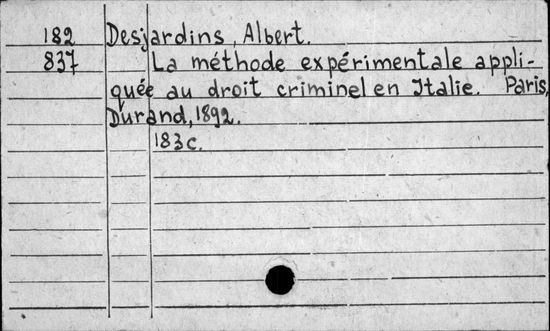 182 Desjardins, Albert.
837 La méthode expérimentale appli-
quée au droit criminel en Italie. Paris,
Durand, 1892.
183c.